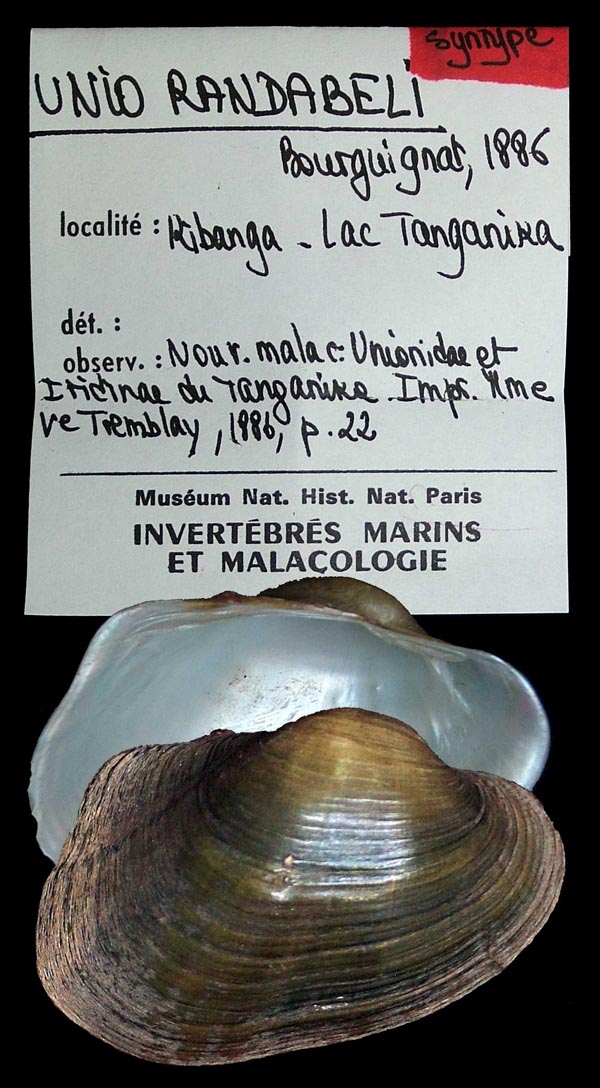 Syntype
UNIO RANDABELI
Bourguignat, 1886
localité : Kibanga - Lac Tanganika
dét. :
observ. : Nouv. malac. Unionidae et
Iridinae du Tanganika. Impr. Mme
Ve Tremblay, 1886, p. 22
Muséum Nat. Hist. Nat. Paris
INVERTÉBRÉS MARINS
ET MALACOLOGIE